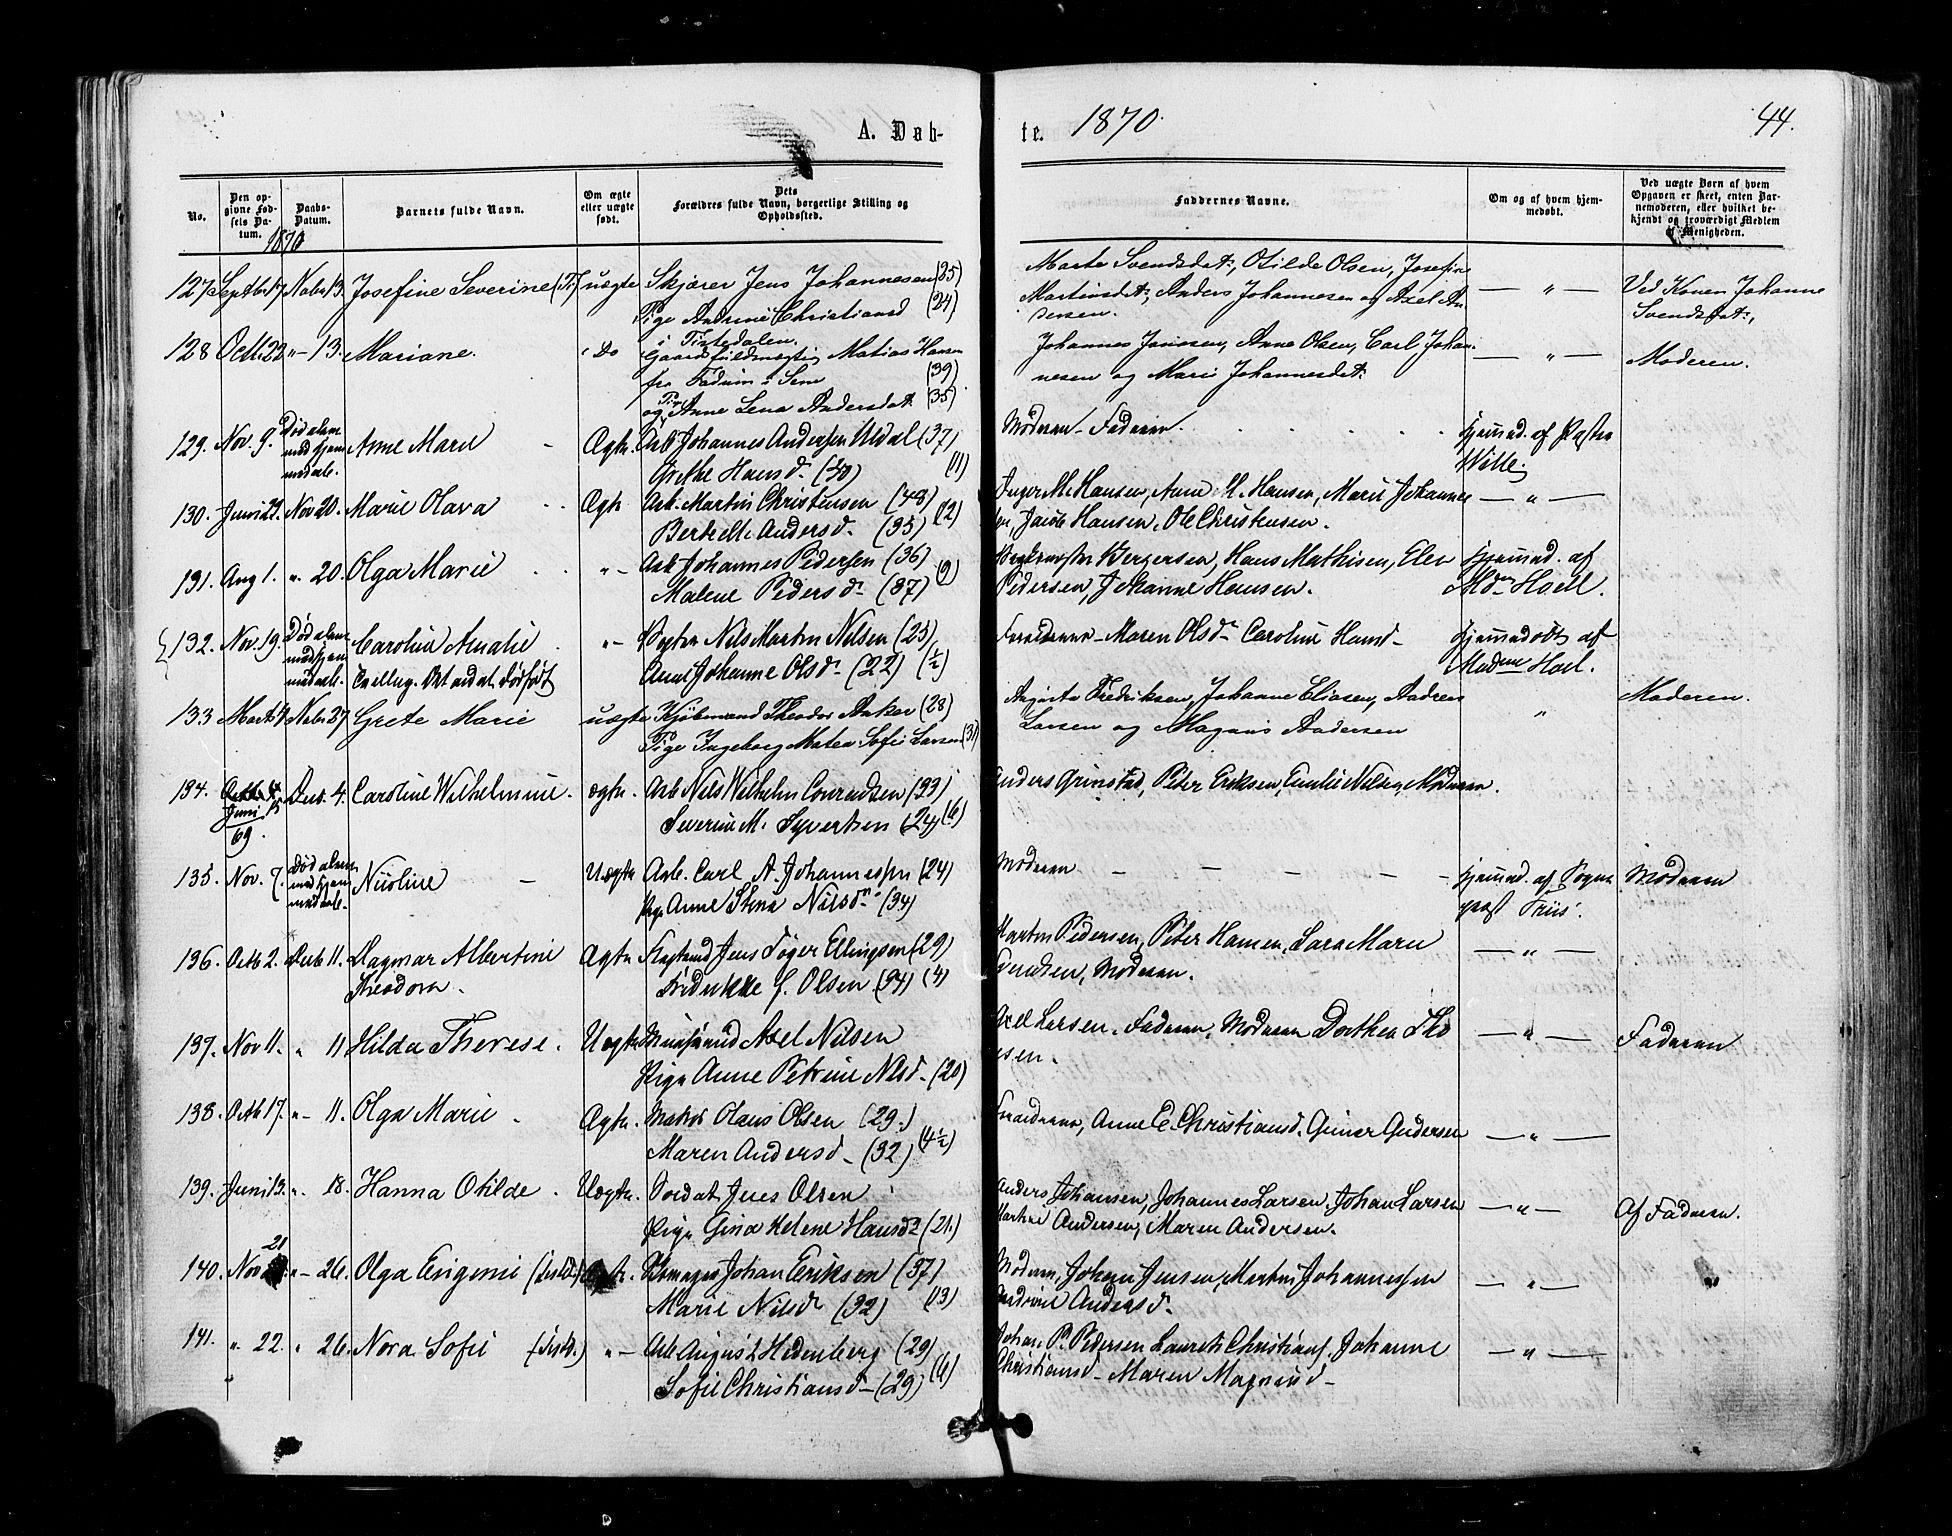 A. Døb-
te. 1870.
44.
No.
Den opgivne Fødsels Datum.
Daabs-Datum.
Barnets fulde Navn.
Om ægte eller uægte født.
Dets Forældres fulde Navn, borgerlige Stilling og Opholdssted.
Faddernes Navne.
Om og af hvem hjemmedøbt.
Ved uægte Børn af hvem Opgaven er skeet, enten Barnemoderen, eller hvilket bekjendt og troværdigt Medlem af Menigheden.
1870
127 Septbr 17 Novbr 13. Josefine Severine (Ti) uægte Skjærer Jens Johannesen (25)
Pige Andrine Christiansd (24)
i Tistedalen.
Marte Svendsdat:, Otilde Olsen, Josefine
Martinsdat:, Anders Johannesen og Axel An-
dersen.
— " — Ved Konen Johanne
Svendsdat:,
128 Octb. 22 "— 13. Mariane. Do Gaardsfuldmægtig Matias Hansen
fra Sem (39)
og Pige Anne Lena Andersdat: (35)
Johannes Jonssen, Anne Olsen, Carl Johan-
nesen og Mari Johannesdat:
— " — Moderen.
129. Nov. 9. Død alene
med hjem
medaab. Anne Marie - Ægte. Arb. Johannes Andersen Uldal (37)
Grethe Hansd. (30) (11)
Moderen - Faderen. Hjemmed. af Pastor
Wille.
130. Juni 21. Nov 20. Marie Olava Ægte Arb. Martin Christensen (48)
Berthe Andersd. (35) (12)
Inger M. Hansen, Anne M. Hansen, Marie Johannes
sen, Jacob Hansen, Ole Christensen. — " —
131. Aug 1. " 20. Olga Marie "- Arb Johannes Pedersen (36)
Malene Pedersd. (37) (9)
Bergersen, Hans Mathisen, Elen
Pedersen, Johanne Hansen. Hjemmed. af
Mdm Hoel.
132. Nov. 19. Død alene
med hjem
medaab. Caroline Amalie
Tvilling. Det andet dødfødt
"- Nils Martin Nilsen (25)
Anne Johanne Olsd. (22) (½)
Forældrene - Maren Olsd. Caroline Hansd - Hjemmedøbt af
Madme Hoel.
133 Marts 4 Novbr 27. Grete Marie uægte Kjøbmand Theodor Anker (28)
Pige Ingeborg Matea Sofie Larsen (31)
Augusta Fredriksen, Johanne Eliasen, Andreas
Larsen og Magnus Andersen " Moderen.
134. Juni
69. Dec. 4. Caroline Wilhelmine. ægte. Arb Nils Wilhelm Conradsen (33)
Severine M. Syvertsen (24) (6)
Anders Grimstad, Peter Eriksen, Emilie Nilsen, Moderen.
135. Nov. 7. Død alene
med hjem
medaab. Nicoline - Uægte Arb. Carl A. Johannessen (24)
Pige Anne Stina Nilsdn (34)
Moderen - - - - Hjemmed. af Sogne
præst Friis. Moderen
136. Octb 2. Decb 11. Dagmar Albertine
Theodora. Ægte Jens Tøger Ellingsen (29)
Fredrikke G. Olsen (34) (4)
Martin Pedersen, Peter Hansen, Lara Marie
Knudsen, Moderen. — " —
137. Nov 11. " 11 Hilda Therese. Uægte Axel Nilsen
Pige Anne Petrine Nilsd - (20)
Axel Larsen. Faderen, Moderen Dorthea Tho
— " — Faderen
138. Octb 17. "- 11. Olga Marie - Ægte. Olaus Olsen (29.)
Maren Andersd - (32) (4½)
Forældrene, Anne E. Christiansd. Gunar Andersen — " —
139. Juni 13. ". 18. Hanna Otilde. Uægte. Soldat Jens Olsen
Pige Gina Helene Hansd. (21)
Anders Johansen, Johannes Larsen, Johan Larsen
Martine Andersen, Maren Andersen. — " — Af Faderen.
140. Nov 21 "- 26. Olga Eugenie (Tistd.) Ægte. Johan Eriksen (37)
Marie Nilsd (32) (13)
Moderen, Johan Jensen, Martin Johannessen
Andrine Andersd. — " — "
141. ". 22. " 26. Nora Sofie (Tistd.) "- Arb August Hedenberg (29)
Sofie Christiansd - (29) (6)
Johan P. Pedersen Laurits Christians. Johanne
Christiansd - Maren Magnusd - — " —